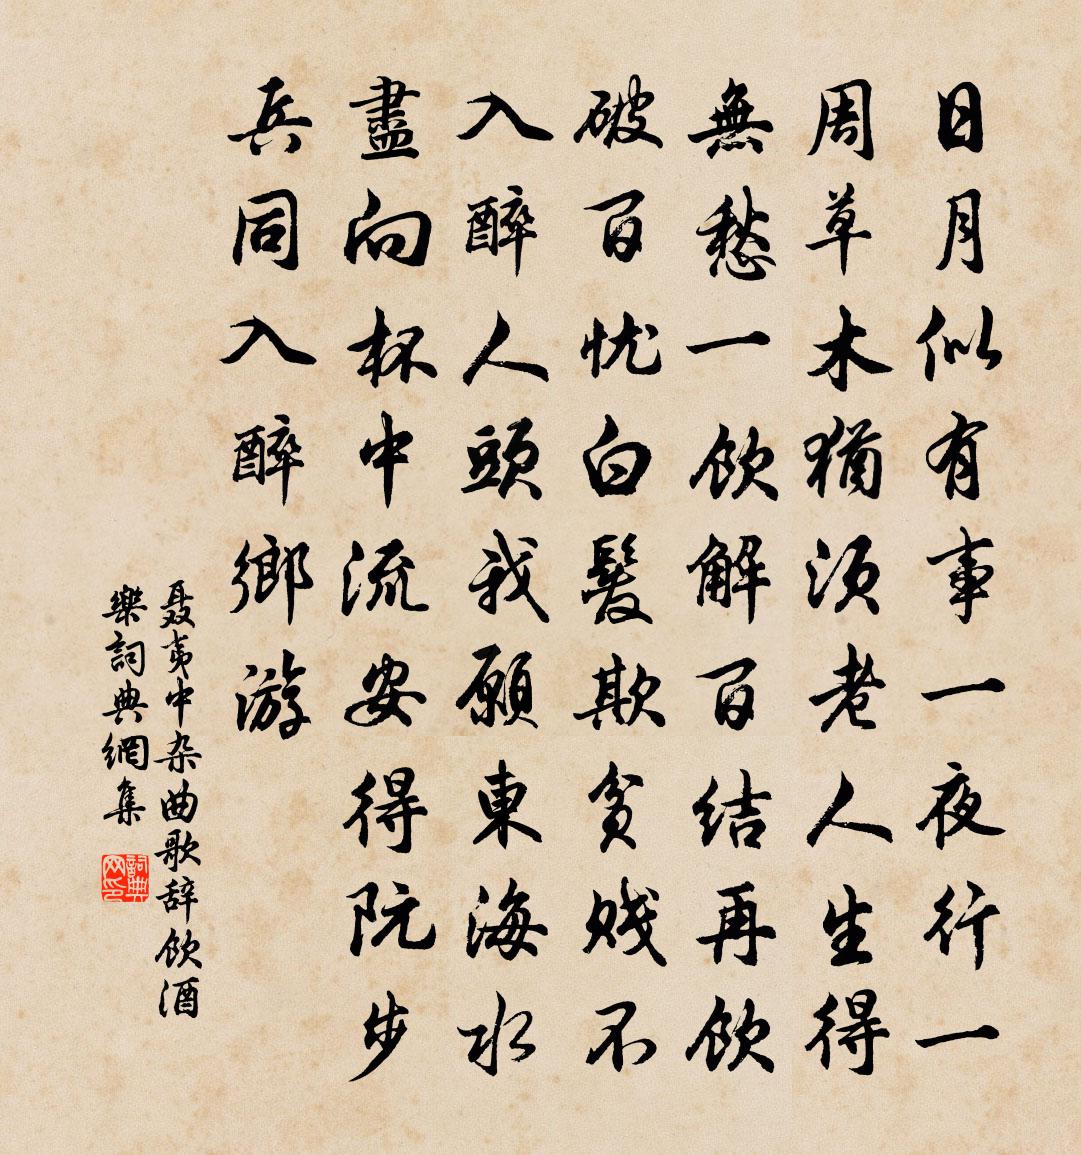 日月似有事一夜行一
周草木猶須老人生得
無愁一飲解百結再飲
破百忧白髮欺貧賤不
入醉人頭我願東海水
盡向杯中流安得阮步
兵同入醉鄉游
聂夷中杂曲歌辞饮酒
樂詞典網集
詞典
网印